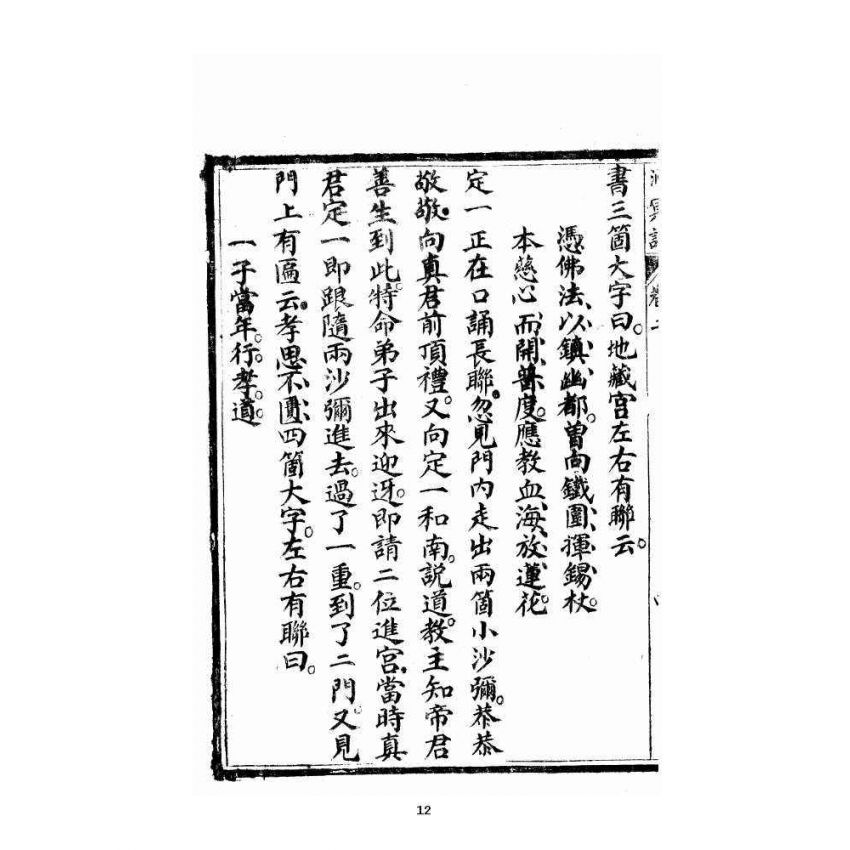 書三箇大字曰。地藏宮左右有聯云。
憑佛法、以鎮幽都。曾向鐵圍、揮錫杖。
本慈心、而開普度。應教血海、放蓮花。
定一正在口誦長聯。忽見門內走出兩箇小沙彌。恭恭
敬敬。向真君前頂禮。又向定一和南。説道。教主知帝君
善生到此。特命弟子出來迎迓。即請二位進宮。當時真
君定一即跟隨兩沙彌進去。過了一重。到了二門。又見
門上有匾云。孝思不匱、四箇大字。左右有聯曰。
一子當年。行。孝。道。
12